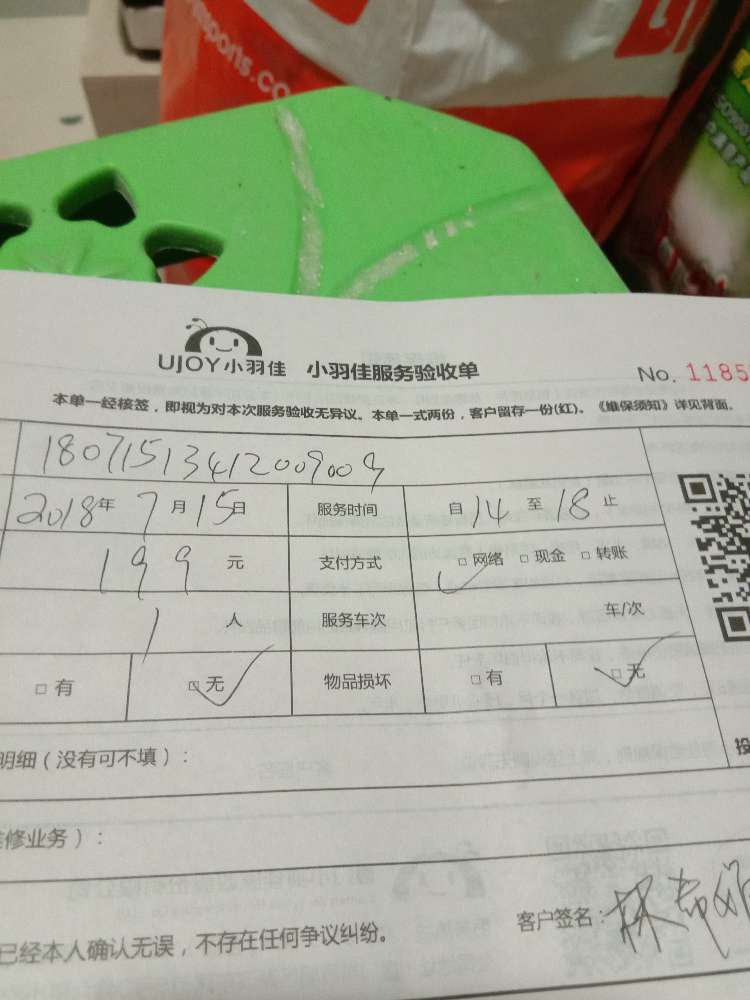 sports.co
UJOY小羽佳 小羽佳服务验收单
No. 1185
本单一经核签，即视为对本次服务验收无异议。本单一式两份，客户留存一份(红)。《维保须知》详见背面。
18071513412009009
2018年7月15日 服务时间 自14至18止
199元 支付方式 □网络 □现金 □转账
1人 服务车次 车/次
□有 □无 物品损坏 □有 □无
明细（没有可不填）：
修业务）：
已经本人确认无误，不存在任何争议纠纷。
客户签名：